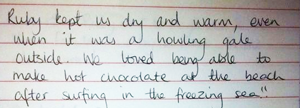 Ruby kept us dry and warm, even
when it was a howling gale
outside. We loved being able to
make hot chocolate at the beach
after surfing in the freezing sea"